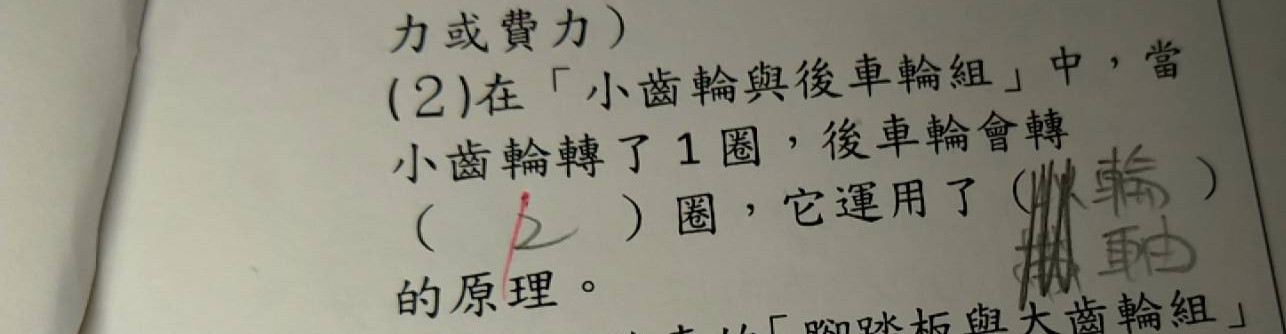 力或費力)
(2)在「小齒輪與後車輪組」中，當
小齒輪轉了1圈，後車輪會轉
( 2 )圈，它運用了(輪軸)
的原理。
「腳踏板與大齒輪組」